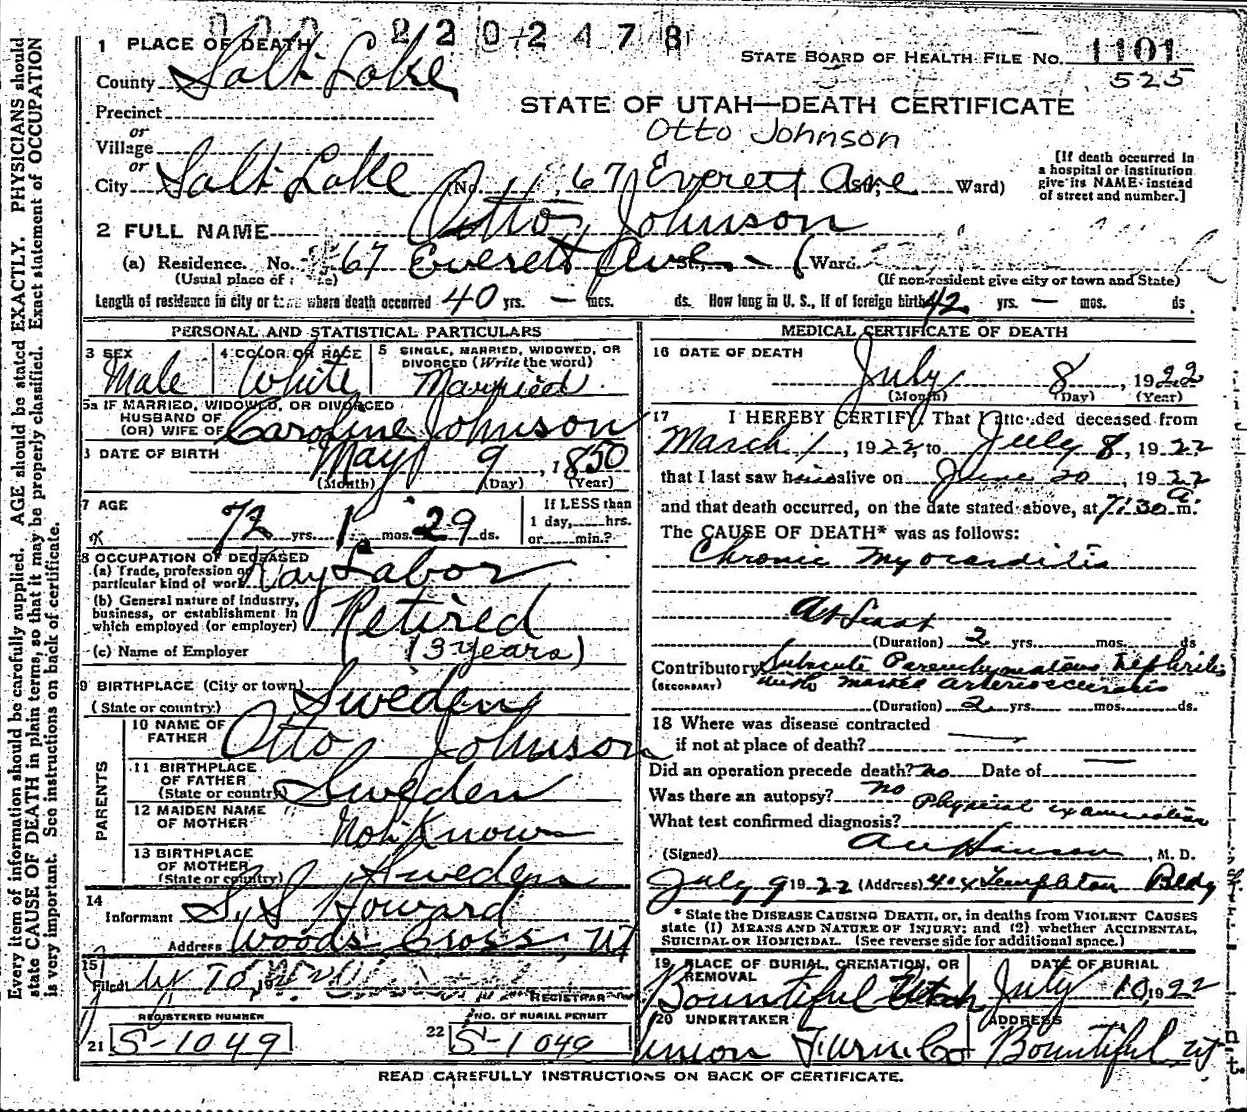 2202478
1 PLACE OF DEATH
STATE BOARD OF HEALTH FILE NO. 1101
525
County Salt Lake
STATE OF UTAH—DEATH CERTIFICATE
Precinct
Otto Johnson
or
Village
or
City Salt Lake (No. 67 Everett Ave St., Ward)
[If death occurred in a hospital or institution give its NAME instead of street and number.]
2 FULL NAME Otto Johnson
(a) Residence. No. 67 Everett Ave. St., (Ward.
(Usual place of
(If non-resident give city or town and State)
Length of residence in city or where death occurred 40 yrs. — mos. ds. How long in U. S., if of foreign birth 42 yrs. — mos. ds
PERSONAL AND STATISTICAL PARTICULARS
3 SEX
Male
4 COLOR OR RACE
White
5 SINGLE, MARRIED, WIDOWED, OR
DIVORCED (Write the word)
Married
5a IF MARRIED, WIDOWED, OR DIVORCED
HUSBAND OF
(OR) WIFE OF Caroline Johnson
DATE OF BIRTH May 9, 1850
(Month) (Day) (Year)
7 AGE
72 yrs. 1 mos. 29 ds.
If LESS than
1 day, hrs.
or min.?
8 OCCUPATION OF DECEASED
(a) Trade, profession or
particular kind of work Labor
(b) General nature of industry,
business, or establishment in
which employed (or employer) Retired
(c) Name of Employer (3 years)
9 BIRTHPLACE (City or town)
(State or country.) Sweden
PARENTS
10 NAME OF
FATHER Otto Johnson
11 BIRTHPLACE
OF FATHER
(State or country) Sweden
12 MAIDEN NAME
OF MOTHER Not Know
13 BIRTHPLACE
OF MOTHER
(State or country) Sweden
14
Informant S. S Howard
Address Woods Cross, Ut
15
Filed
REGISTRAR
REGISTERED NUMBER
21 S-1049
NO. OF BURIAL PERMIT
22 S-1049
MEDICAL CERTIFICATE OF DEATH
16 DATE OF DEATH July 8, 1922
(Month) (Day) (Year)
17 I HEREBY CERTIFY That I attended deceased from
March 1, 1922, to July 8, 1922
that I last saw him alive on June 20, 1922
and that death occurred, on the date stated above, at 7:30 a. m.
The CAUSE OF DEATH* was as follows:
Chronic myocarditis
At Least
(Duration) 2 yrs. mos. ds
Contributory Subacute Parenchymatous Nephritis
(SECONDARY) with
(Duration) 2 yrs. mos. ds.
18 Where was disease contracted
if not at place of death?
Did an operation precede death? no Date of —
Was there an autopsy? no
What test confirmed diagnosis? Physical examination
(Signed) Hanson, M. D.
July 9 1922 (Address) 404 Templeton Bldg
* State the DISEASE CAUSING DEATH, or, in deaths from VIOLENT CAUSES
state (1) MEANS AND NATURE OF INJURY; and (2) whether ACCIDENTAL,
SUICIDAL OR HOMICIDAL. (See reverse side for additional space.)
19 PLACE OF BURIAL, CREMATION, OR
REMOVAL
Bountiful Utah
DATE OF BURIAL
July 10, 1922
20 UNDERTAKER
Union Furn. Co
ADDRESS
Bountiful, Ut
READ CAREFULLY INSTRUCTIONS ON BACK OF CERTIFICATE.
Every item of information should be carefully supplied. AGE should be stated EXACTLY. PHYSICIANS should
state CAUSE OF DEATH in plain terms, so that it may be properly classified. Exact statement of OCCUPATION
is very important. See instructions on back of certificate.